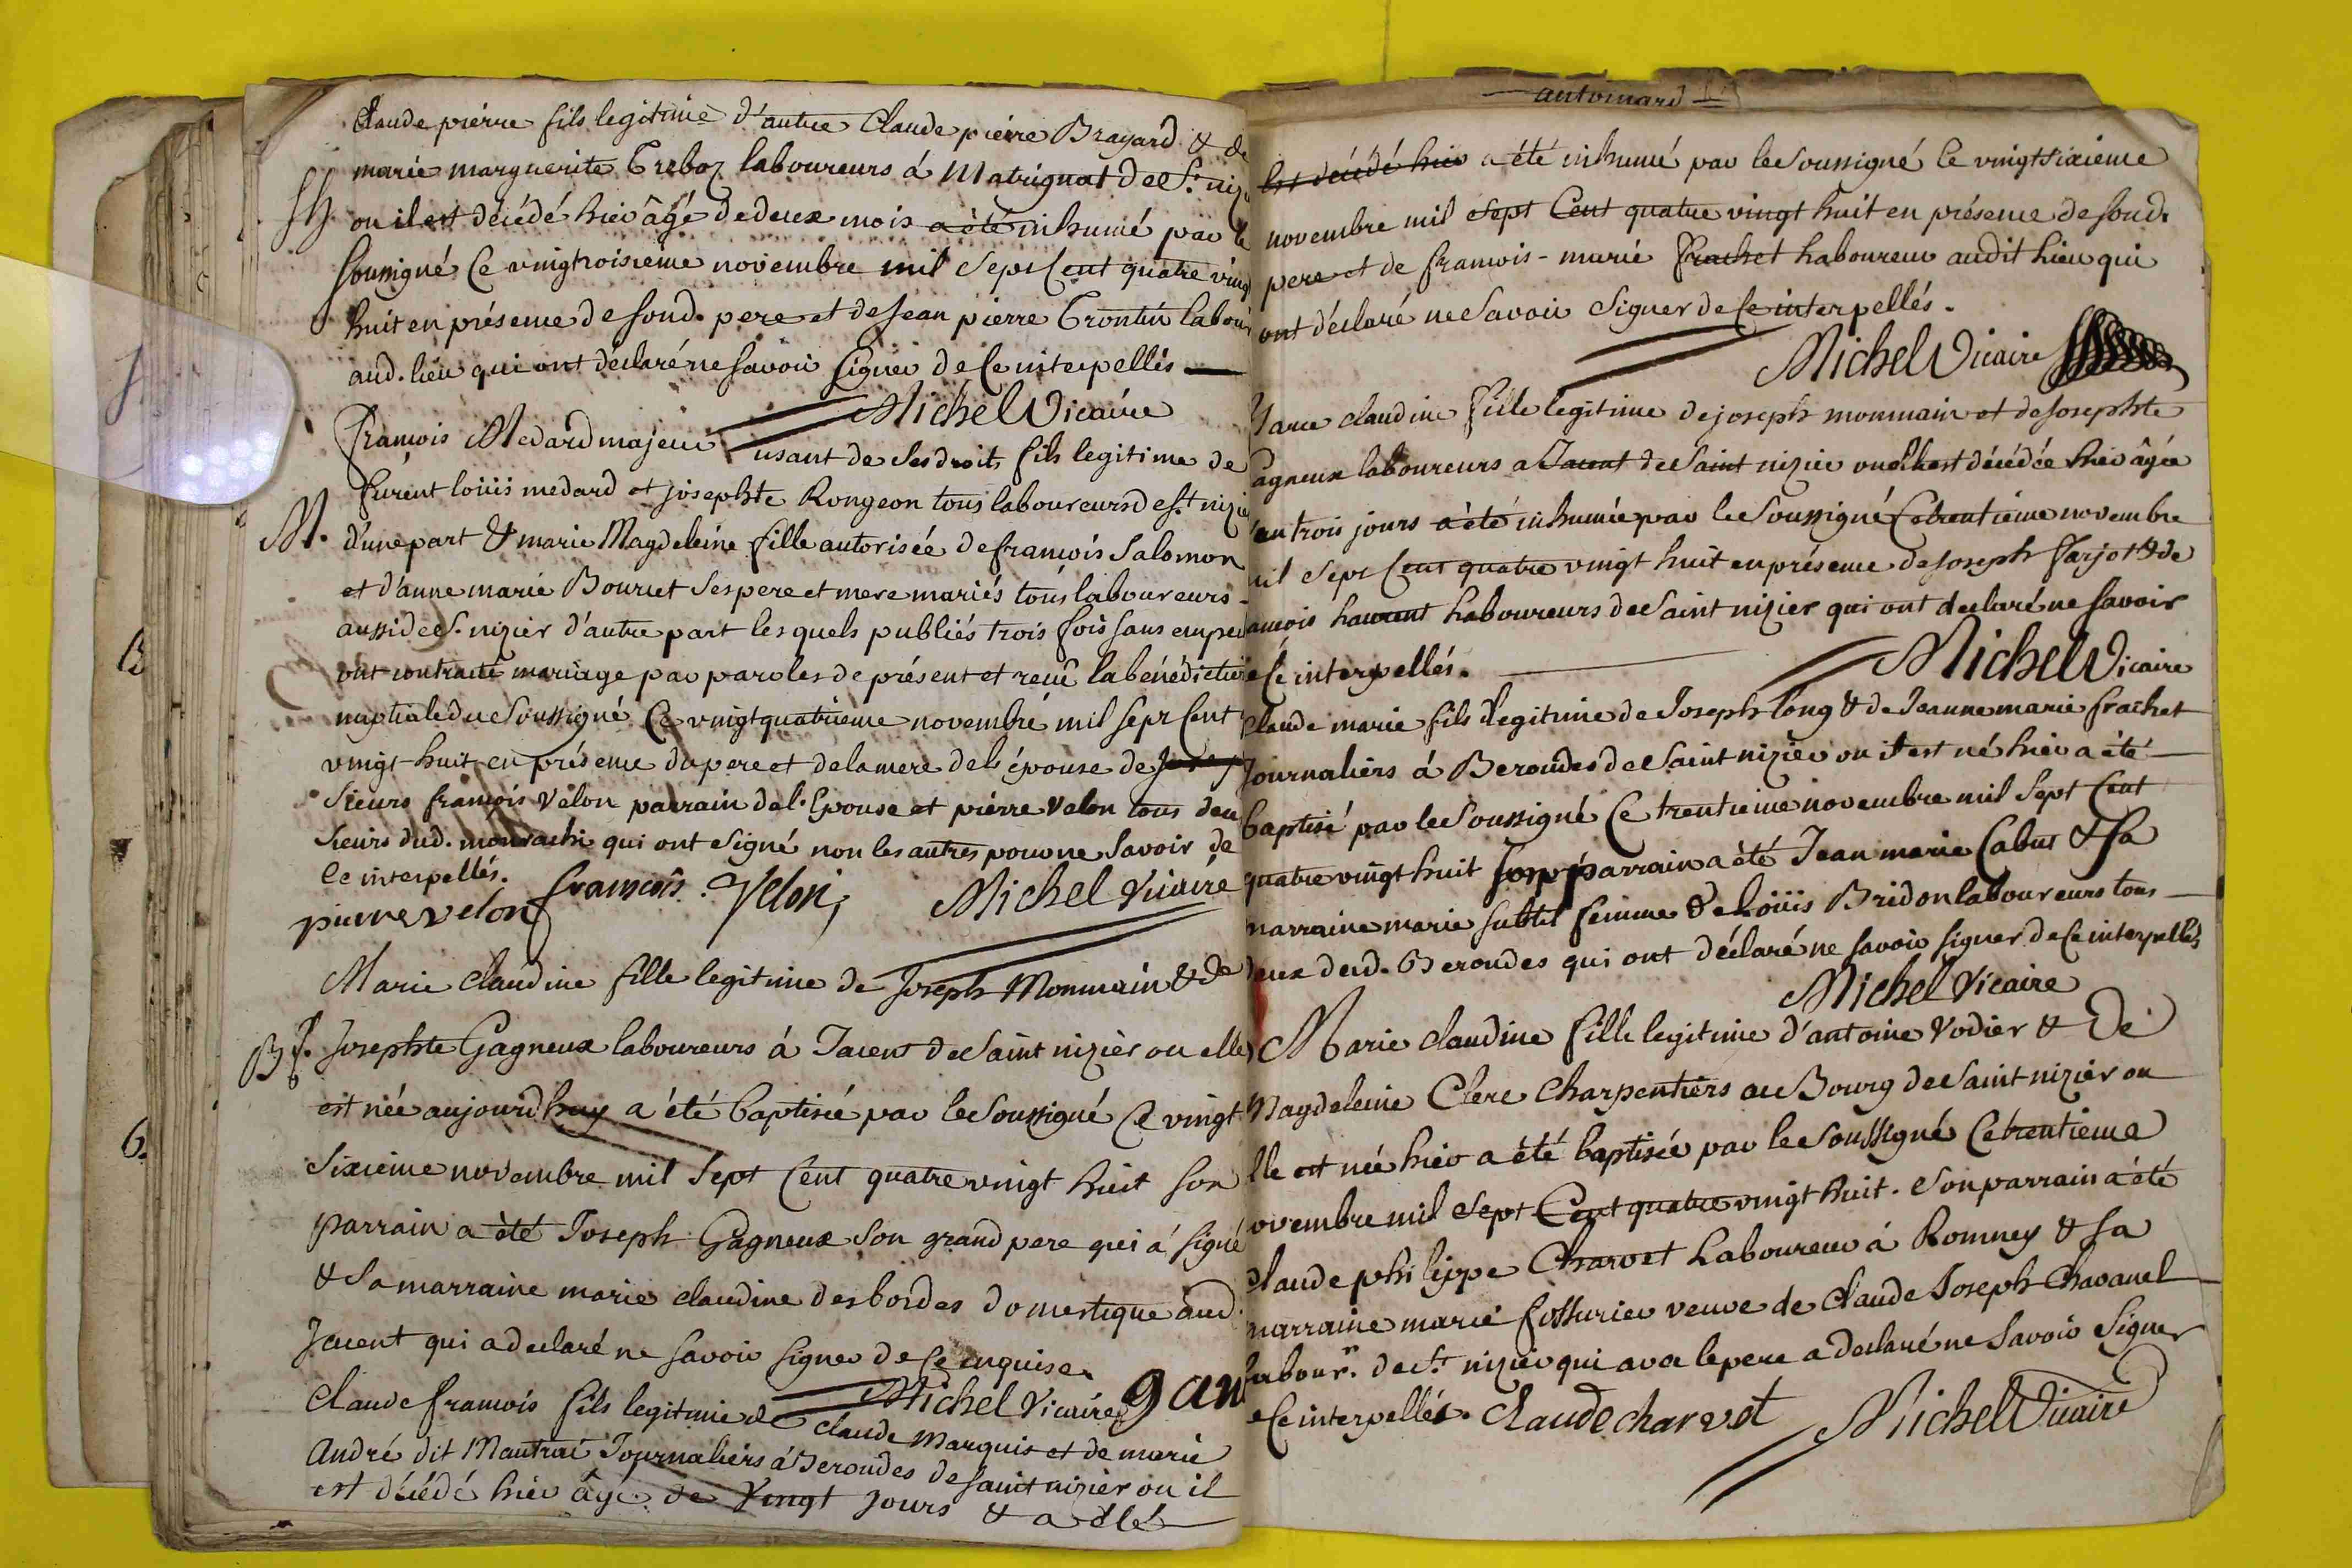 Claude pierre fils legitime d'autre Claude pierre Brayard & de
marie marguerite Treboz laboureurs á Matrignat de St. niz
ou il est décédé hier âgé de deux mois a été inhumé par le
soussigné Ce vingtroisieme novembre mil sept Cent quatre ving
huit en présence de sond. pere et de Jean pierre Trontin labour
aud. lieu qui ont déclaré ne savoir signer de Ce interpellés
Michel Vicaire
François Medard majeur usant de ses droits fils legitime de
furent loüis medard et josephte Rongeon tous laboureurs de St. nizier
M. d'une part & marie Magdeleine fille autorisée de françois Salomon
et d'anne marie Bourcet ses pere et mere mariés tous laboureurs
aussi de St. nizier d'autre part les quels publiés trois fois sans empe
ont contracté mariage par paroles de présent et reçû la bénédiction
nuptiale du soussigné Ce vingt quatrieme novembre mil sept Cent
vingt-huit en présence du pere et de la mere de l'épouse de
Sieurs françois Velon parrain de l'Epouse et pierre Velon tous deu
Sieurs dud. qui ont signé non les autres pour ne savoir de
Ce interpellés.
pierre velon françois Velon Michel Vicaire
Marie Claudine fille legitime de Joseph Monmain & de
B f. Josephte Gagneux laboureurs á Jacent de Saint nizier ou elle
est née aujourdhuy a été baptisée par le soussigné Ce vingt
Sixieme novembre mil Sept Cent quatre vingt huit son
parrain a été Joseph Gagneux son grand pere qui á signé
& sa marraine marie claudine desbordes domestique aud.
Jacent qui a declaré ne savoir signer de Ce enquise.
Michel Vicaire gan
Claude françois fils legitime de Claude Marquis et de marie
André dit Mantrai Journaliers á Beroudes de saint nizier ou il
est décédé hier âgé de vingt jours & a été
antoinard
est décédé hier a été inhumé par le Soussigné le vingt sixieme
novembre mil sept Cent quatre vingt huit en présence de sond.
pere et de françois-marie frachet Laboureur audit Lieu qui
ont déclaré ne savoir signer de Ce interpellés.
Michel Vicaire
Marie claudine fille legitime de joseph monmain et de Josephte
agneux laboureurs a Jacent de Saint nizier ou elle est décédée hier âgée
trois jours a été inhumée par le Soussigné Ce trentieme novembre
il sept Cent quatre vingt huit en présence de Joseph farjot & de
ançois Laurent Laboureurs de Saint nizier qui ont declaré ne savoir
e Ce interpellés.
Michel Vicaire
Claude marie fils legitime de Joseph long & de Jeanne marie frachet
Journaliers á Beroudes de Saint nizier ou il est né hier a été
baptisé par le Soussigné Ce trentieme novembre mil Sept Cent
quatre vingt huit son parrain a été Jean marie Cabut & sa
marraine marie subtil femme de Loüis Bridon laboureurs tous
deux dud. Beroudes qui ont déclaré ne savoir signer de Ce interpellés
Michel Vicaire
Marie claudine fille legitime d'antoine Vodier & De
Magdeleine Clerc Charpentiers au Bourg de Saint nizier ou
lle est née hier a été baptisée par le Soussigné Ce trentieme
ovembre mil Sept Cent quatre vingt huit. Son parrain a été
claude philippe Charvet Laboureur á Romney & sa
marraine marie veuve de Claude Joseph Chavanel
labourr. de St. nizier qui avec le pere a declaré ne savoir signer
e Ce interpellés. Claude charvet Michel Vicaire